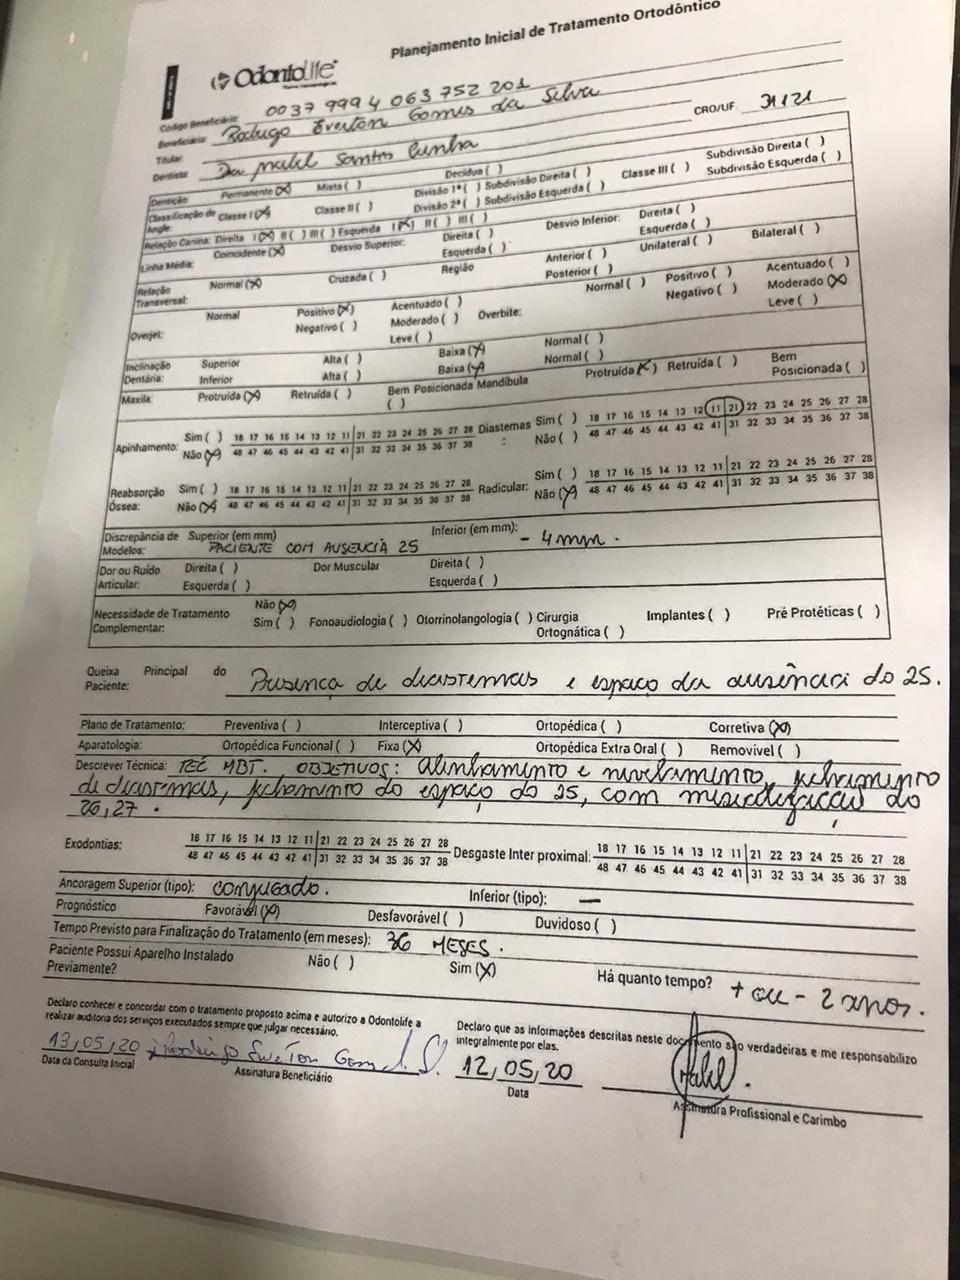 Planejamento Inicial de Tratamento Ortodôntico
OdontoLife
Código Beneficiário: 0037 9994 063 752 201
Beneficiário: Rodrigo Everton Gomes da Silva
Titular:
Dentista: Dra Mabel Santos Cunha CRO/UF. 31121
Dentição Permanente (X) Mista ( ) Decídua ( )
Classificação de Angle: Classe I (X) Classe II ( ) Divisão 1ª ( ) Subdivisão Direita ( ) Classe III ( ) Subdivisão Direita ( )
Divisão 2ª ( ) Subdivisão Esquerda ( ) Subdivisão Esquerda ( )
Relação Canina: Direita I (X) II ( ) III ( ) Esquerda I (X) II ( ) III ( )
Linha Média: Coincidente (X) Desvio Superior: Direita ( ) Desvio Inferior: Direita ( )
Esquerda ( ) Esquerda ( )
Relação Transversal: Normal (X) Cruzada ( ) Região Anterior ( ) Unilateral ( ) Bilateral ( )
Posterior ( )
Overjet: Normal Positivo (X) Acentuado ( ) Overbite: Normal ( ) Positivo ( ) Acentuado ( )
Negativo ( ) Moderado ( ) Negativo ( ) Moderado (X)
Leve ( ) Leve ( )
Inclinação Dentária: Superior Alta ( ) Baixa (X) Normal ( )
Inferior Alta ( ) Baixa (X) Normal ( )
Maxila: Protruída (X) Retruída ( ) Bem Posicionada ( ) Mandíbula Protruída (X) Retruída ( ) Bem Posicionada ( )
Apinhamento: Sim ( ) 18 17 16 15 14 13 12 11 21 22 23 24 25 26 27 28 Diastemas: Sim ( ) 18 17 16 15 14 13 12 11 21 22 23 24 25 26 27 28
Não (X) 48 47 46 45 44 43 42 41 31 32 33 34 35 36 37 38 Não ( ) 48 47 46 45 44 43 42 41 31 32 33 34 35 36 37 38
Reabsorção Óssea: Sim ( ) 18 17 16 15 14 13 12 11 21 22 23 24 25 26 27 28 Radicular: Sim ( ) 18 17 16 15 14 13 12 11 21 22 23 24 25 26 27 28
Não (X) 48 47 46 45 44 43 42 41 31 32 33 34 35 36 37 38 Não (X) 48 47 46 45 44 43 42 41 31 32 33 34 35 36 37 38
Discrepância de Modelos: Superior (em mm) PACIENTE COM AUSENCIA 25 Inferior (em mm): - 4 mm.
Dor ou Ruído Articular: Direita ( ) Dor Muscular Direita ( )
Esquerda ( ) Esquerda ( )
Necessidade de Tratamento Complementar: Não (X)
Sim ( ) Fonoaudiologia ( ) Otorrinolangologia ( ) Cirurgia Ortognática ( ) Implantes ( ) Pré Protéticas ( )
Queixa Principal do Paciente: Presença de diastemas e espaço da ausência do 25.
Plano de Tratamento: Preventiva ( ) Interceptiva ( ) Ortopédica ( ) Corretiva (X)
Aparatologia: Ortopédica Funcional ( ) Fixa (X) Ortopédica Extra Oral ( ) Removível ( )
Descrever Técnica: TEC MBT. OBJETIVOS: Alinhamento e nivelamento, fechamento
de diastemas, fechamento do espaço do 25, com mesialização do
26,27.
Exodontias: 18 17 16 15 14 13 12 11 21 22 23 24 25 26 27 28 Desgaste Inter proximal: 18 17 16 15 14 13 12 11 21 22 23 24 25 26 27 28
48 47 46 45 44 43 42 41 31 32 33 34 35 36 37 38 48 47 46 45 44 43 42 41 31 32 33 34 35 36 37 38
Ancoragem Superior (tipo): conjugado. Inferior (tipo): —
Prognóstico Favorável (X) Desfavorável ( ) Duvidoso ( )
Tempo Previsto para Finalização do Tratamento (em meses): 36 MESES.
Paciente Possui Aparelho Instalado Previamente? Não ( ) Sim (X) Há quanto tempo? + ou - 2 anos.
Declaro conhecer e concordar com o tratamento proposto acima e autorizo a Odontolife a
realizar auditoria dos serviços executados sempre que julgar necessário.
Declaro que as informações descritas neste documento são verdadeiras e me responsabilizo
integralmente por elas.
13,05,20 Rodrigo Everton Gomes d. S.
Data da Consulta Inicial Assinatura Beneficiário
12,05,20 Mabel.
Data Assinatura Profissional e Carimbo